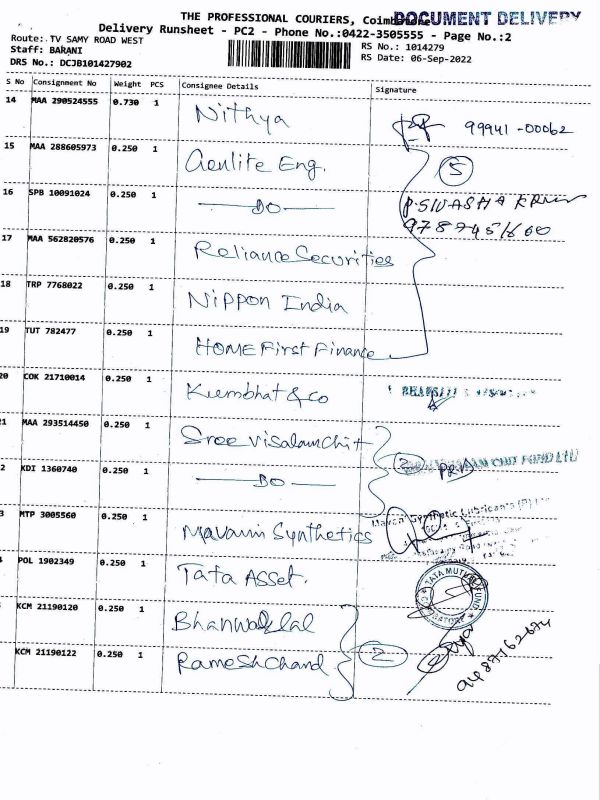 THE PROFESSIONAL COURIERS, Coimb
DOCUMENT DELIVERY
Delivery Runsheet - PC2 - Phone No.:0422-3505555 - Page No.:2
Route: TV SAMY ROAD WEST
RS No.: 1014279
Staff: BARANI
RS Date: 06-Sep-2022
DRS No.: DCJB101427902
S No Consignment No Weight PCS Consignee Details Signature
14 MAA 290524555 0.730 1 Nithya 99941-00062
15 MAA 288605973 0.250 1 Genlite Eng. 5
16 SPB 10091024 0.250 1 —DO—
17 MAA 562820576 0.250 1 Reliance Securities
18 TRP 7768022 0.250 1 Nippon India
19 TUT 782477 0.250 1 HOME First Finance
20 COK 21710014 0.250 1 Kumbhat & Co
21 MAA 293514450 0.250 1 Sree Visalam Chit
2 KDI 1360740 0.250 1 —DO— 2 CHIT FUND LTD
3 MTP 3005560 0.250 1 Mavam Synthetics
POL 1902349 0.250 1 Tata Asset.
TATA MUTUAL FUND
KCM 21190120 0.250 1 Bhanwarlal
KCM 21190122 0.250 1 Ramesh Chand 2